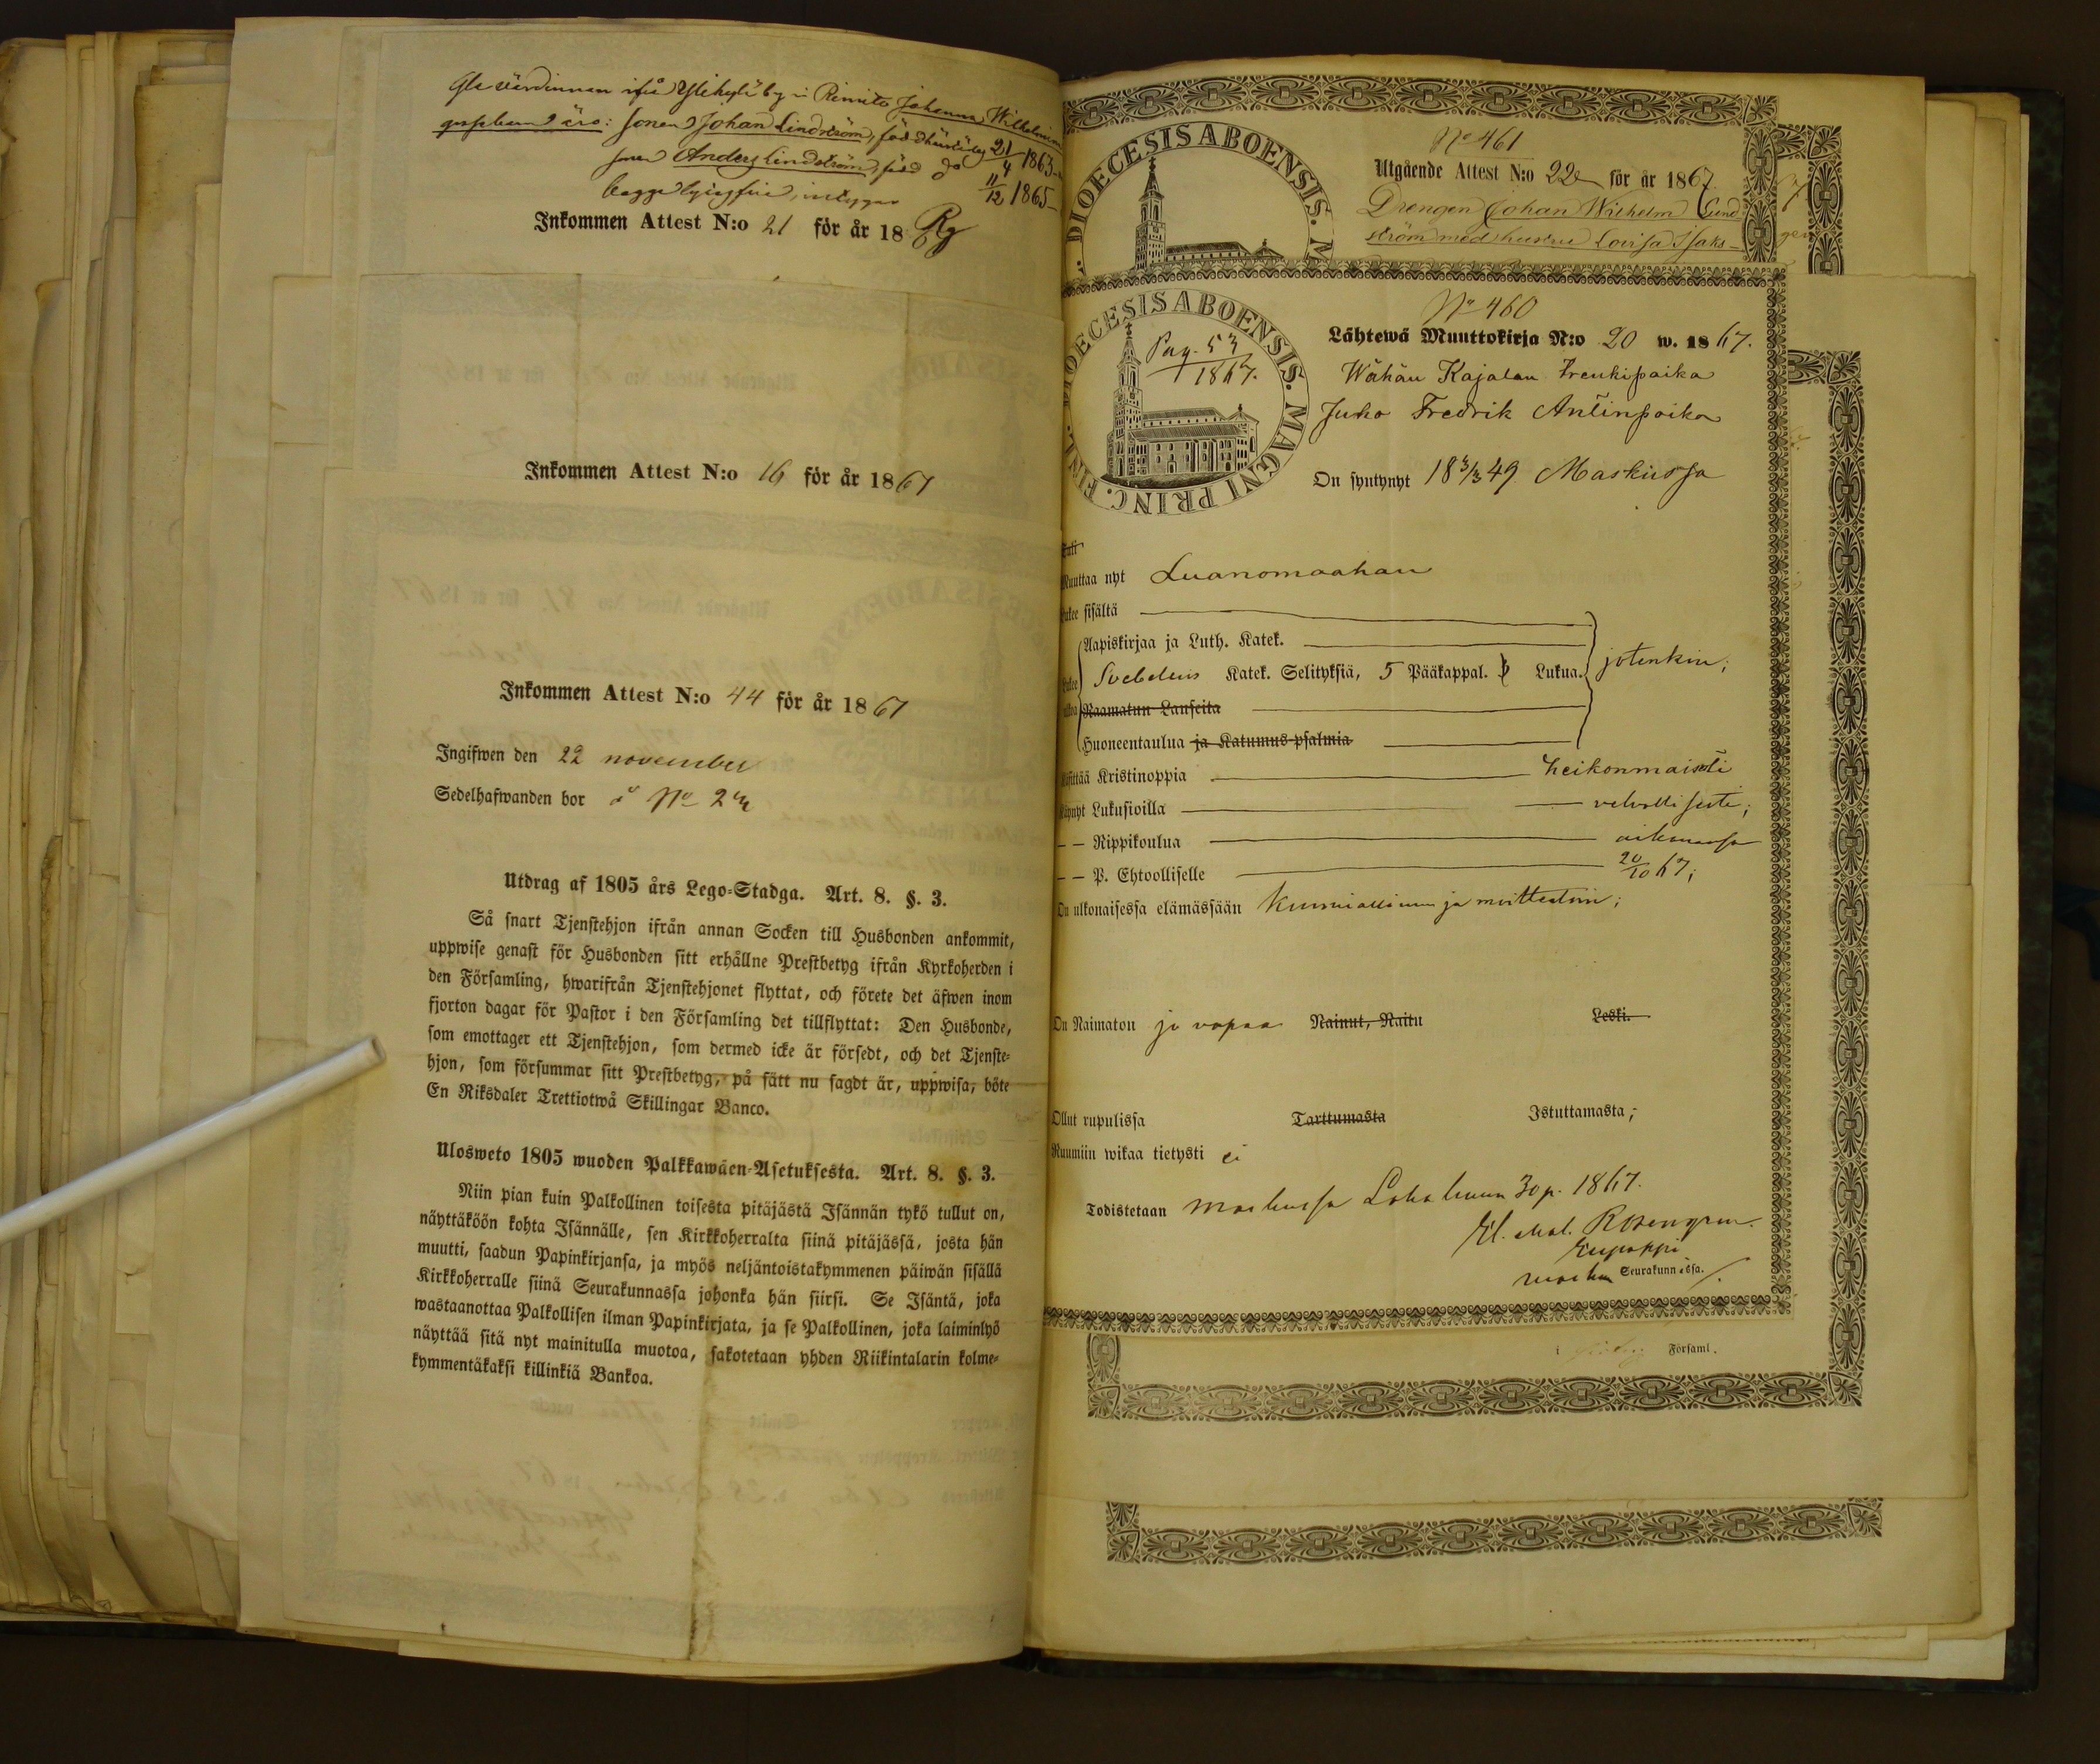 Johanna Wilhelmina
äro: sonen Johan Lindström, född härstädes 21/4 1863
sonen Anders Lindström, född do 11/12 1865
Inkommen Attest N:o 21 för år 18
Inkommen Attest N:o 16 för år 1867
Inkommen Attest N:o 44 för år 1867
Ingifwen den 22 november
Sedelhafwanden bor å No 2
Utdrag af 1805 års Lego-Stadga. Art. 8. §. 3.
Så snart Tjenstehjon ifrån annan Socken till Husbonden ankommit,
uppwise genast för Husbonden sitt erhållne Prestbetyg ifrån Kyrkoherden i
den Församling, hwarifrån Tjenstehjonet flyttat, och förete det äfwen inom
fjorton dagar för Pastor i den Församling det tillflyttat: Den Husbonde,
som emottager ett Tjenstehjon, som dermed icke är försedt, och det Tjenste-
hjon, som försummar sitt Prestbetyg, på sätt nu sagdt är, uppwisa, böte
En Riksdaler Trettiotwå Skillingar Banco.
Ulosweto 1805 wuoden Palkkawäen-Asetuksesta. Art. 8. §. 3.
Niin pian kuin Palkollinen toisesta pitäjästä Isännän tykö tullut on,
näyttäköön kohta Isännälle, sen Kirkkoherralta siinä pitäjässä, josta hän
muutti, saadun Papinkirjansa, ja myös neljäntoistakymmenen päiwän sisällä
Kirkkoherralle siinä Seurakunnassa johonka hän siirsi. Se Isäntä, joka
wastaanottaa Palkollisen ilman Papinkirjata, ja se Palkollinen, joka laiminlyö
näyttää sitä nyt mainitulla muotoa, sakotetaan yhden Riikintalarin kolme-
kymmentäkaksi killinkiä Bankoa.
DIOECESIS ABOENSIS. M
No 461
Utgående Attest N:o 22 för år 1867.
Drengen Johan Wilhelm Lind
ström med hustru Lovisa Isaks-
DIOECESIS ABOENSIS. MAGNI PRINC. FINL.
Pag. 53
1867.
No 460
Lähtewä Muuttokirja N:o 20 w. 1867.
Wähän Kajalan trenkipoika
Juho Fredrik Antinpoika
On syntynyt 18 3/3 49 Maskussa
Muuttaa nyt Luonnomaahan
Lukee sisältä
Aapiskirjaa ja Luth. Katek.
Svebelius Katek. Selityksiä, 5 Pääkappal. Lukua. jotenkin;
Raamatun Lauseita
Huoneentaulua ja Katumus-psalmia
Käsittää Kristinoppia heikonmaisesti
Käynyt Lukusioilla velvollisesti;
– – Rippikoulua aikanansa
– – P. Ehtoolliselle 20/10 67;
On ulkonaisessa elämässään kunniallinen ja moitteetoin;
On Naimaton ja vapaa Nainut, Naitu Leski.
Ollut rupulissa Tarttumasta Istuttamasta;
Ruumiin wikaa tietysti ei
Todistetaan Maskussa Lokakuun 30 p. 1867.
Rosengren.
Maskun Seurakunnassa.
i Församl.